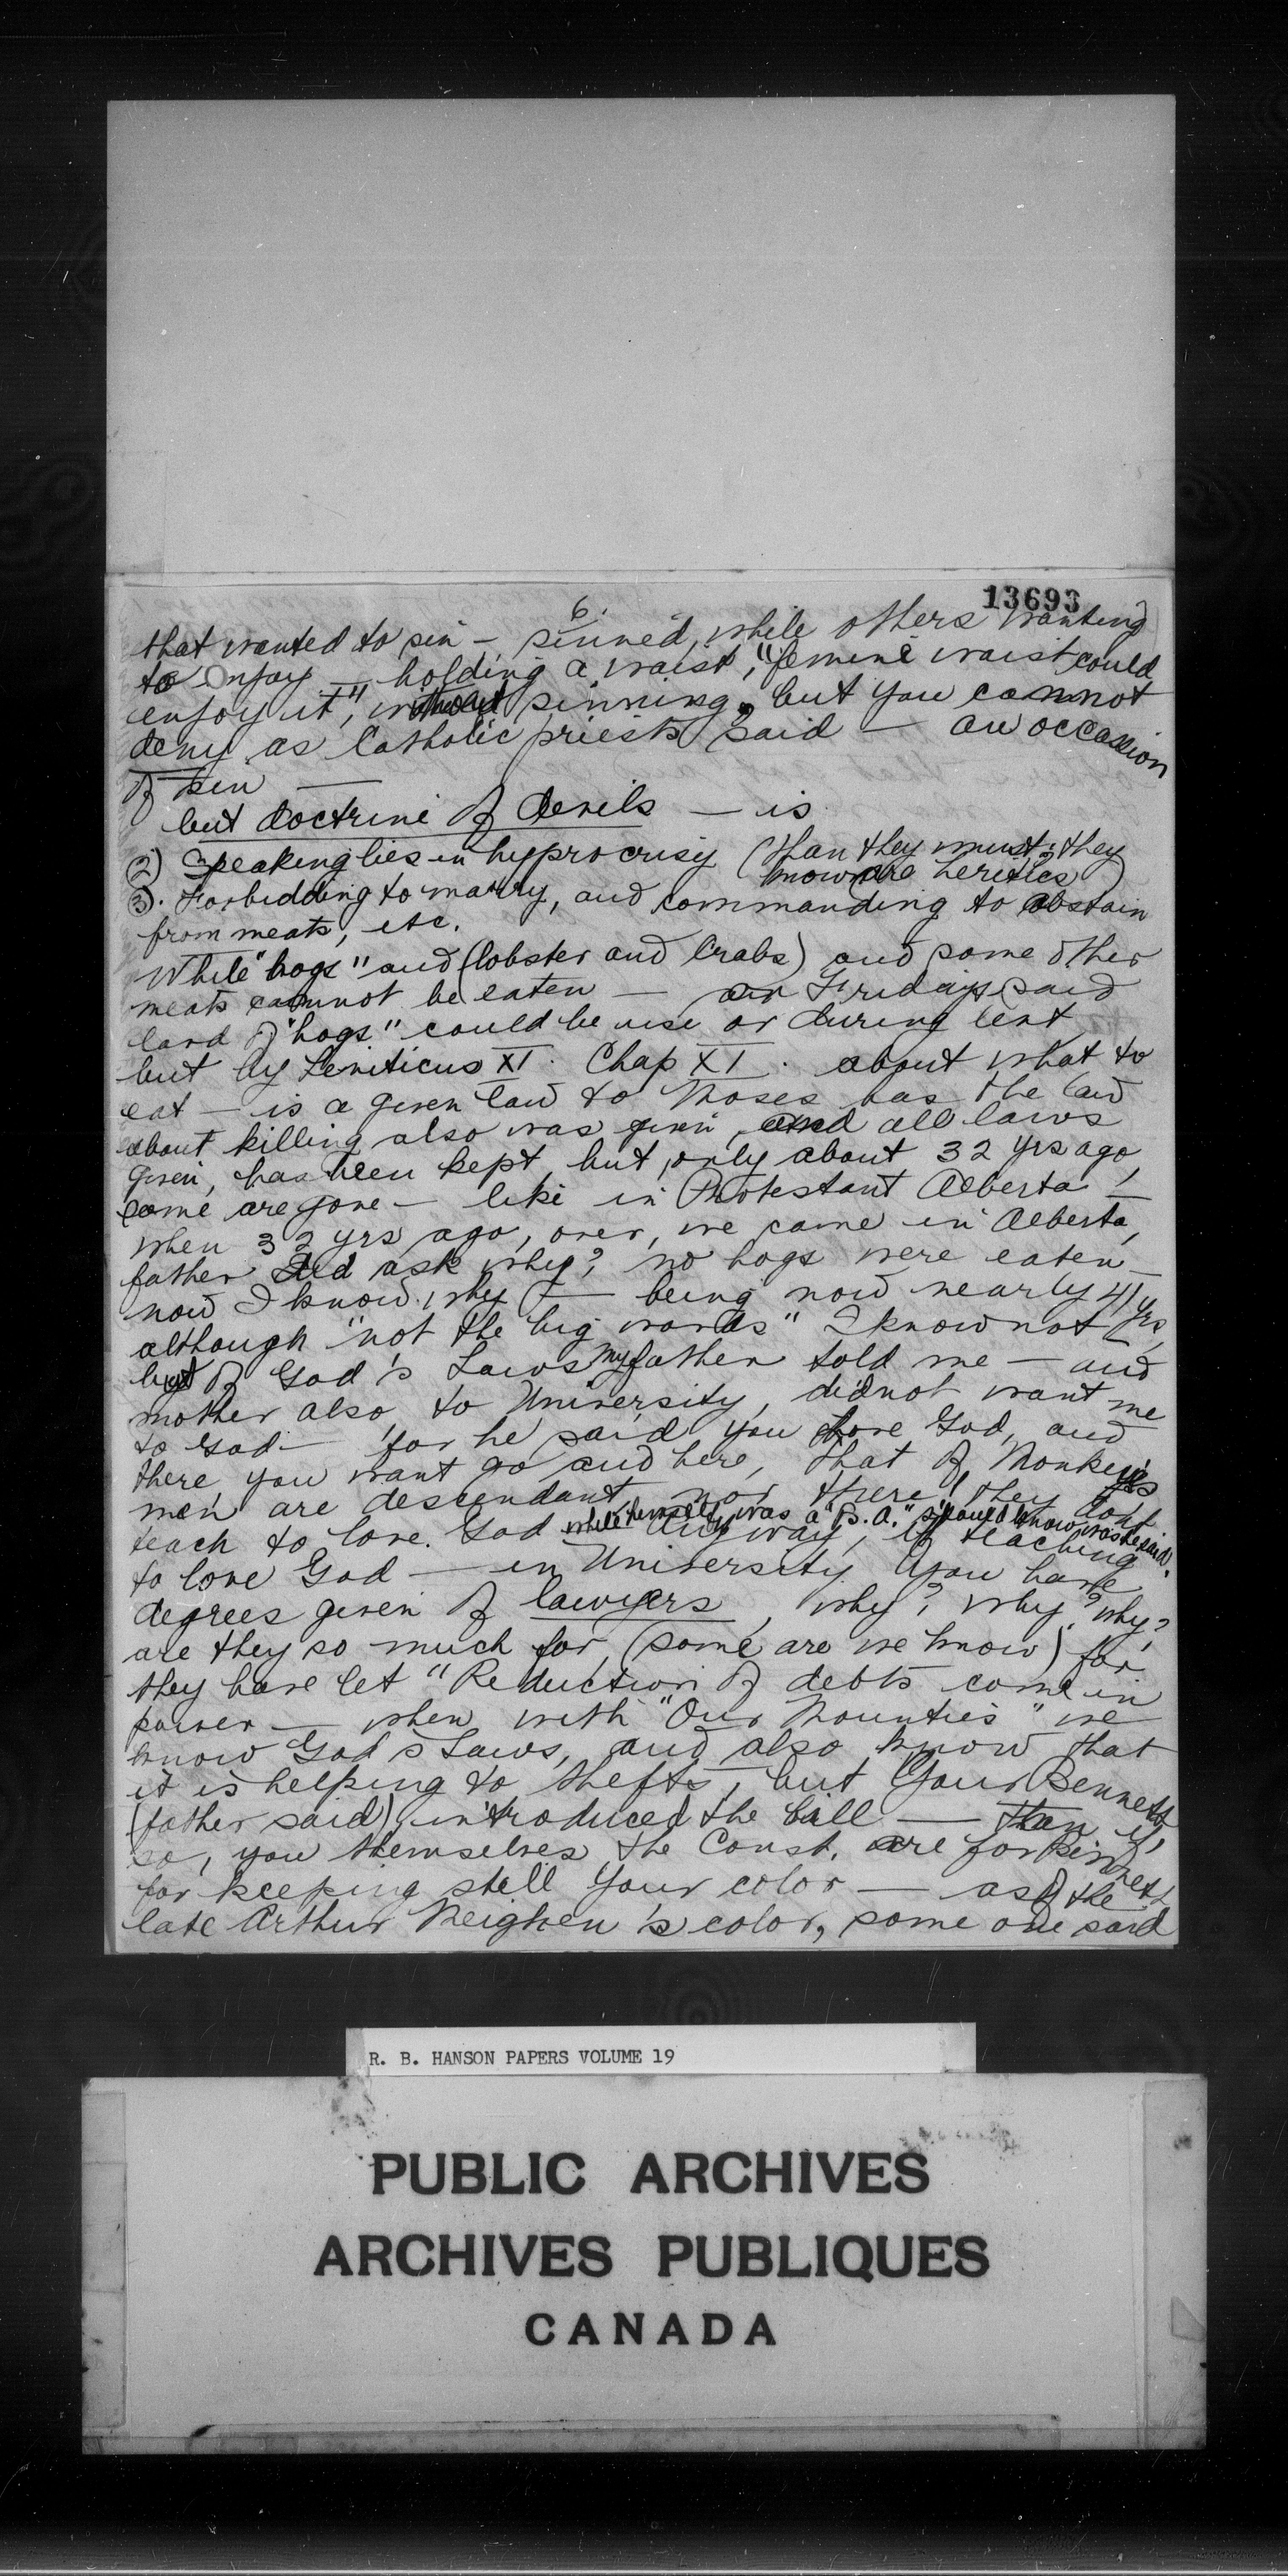 13693
6.
that wanted to sin — sinned, while others wanting
to enjoy — holding a waist, "femine waist could
enjoy it", without sinning, but you cannot
deny as Catholic priests said — an occasion
of sin —
but doctrine of devils — is
(2) Speaking lies in hyprocrisy (than they must, they
know are heretics)
(3). Forbidding to marry, and commanding to abstain
from meats, etc.
While "hogs" and (lobster and Crabs) and some other
meats cannot be eaten — on Fridays, said
lard of "hogs" could be use or during lent
but by Leviticus XI. Chap XI. about what to
eat — is a given law to Moses has the law
about killing also was given, and all laws
given, has been kept, but only about 32 yrs ago,
some are gone — like in Protestant Alberta!
when 32 yrs ago, over, we came in Alberta,
father did ask why? no hogs were eaten —
now I know why — being now nearly 41 yrs,
although "not the big words" I know not
but of God's Laws my father told me — and
mother also, to University, did not want me
to God — for he said, you love God, and
there you want go, and here, that of Monkeys
men are descendant, nor there, they dont
teach to love God while himself was a "B.A." should know was he said.
anyway, if teaching
to love God — in University you have
degrees given of lawyers, why? why? why?
are they so much for, (some are we know) for
they have let "Reduction of debts come in
power — when with "Our Mounties" we
know God's Laws, and also know that
it is helping to thefts, but Your Bennett
(father said), introduced the bill — than if
so, you themselves the Const. are for Bennett
for keeping still Your color — as of the
late Arthur Meighen's color, some one said
R. B. HANSON PAPERS VOLUME 19
PUBLIC ARCHIVES
ARCHIVES PUBLIQUES
CANADA